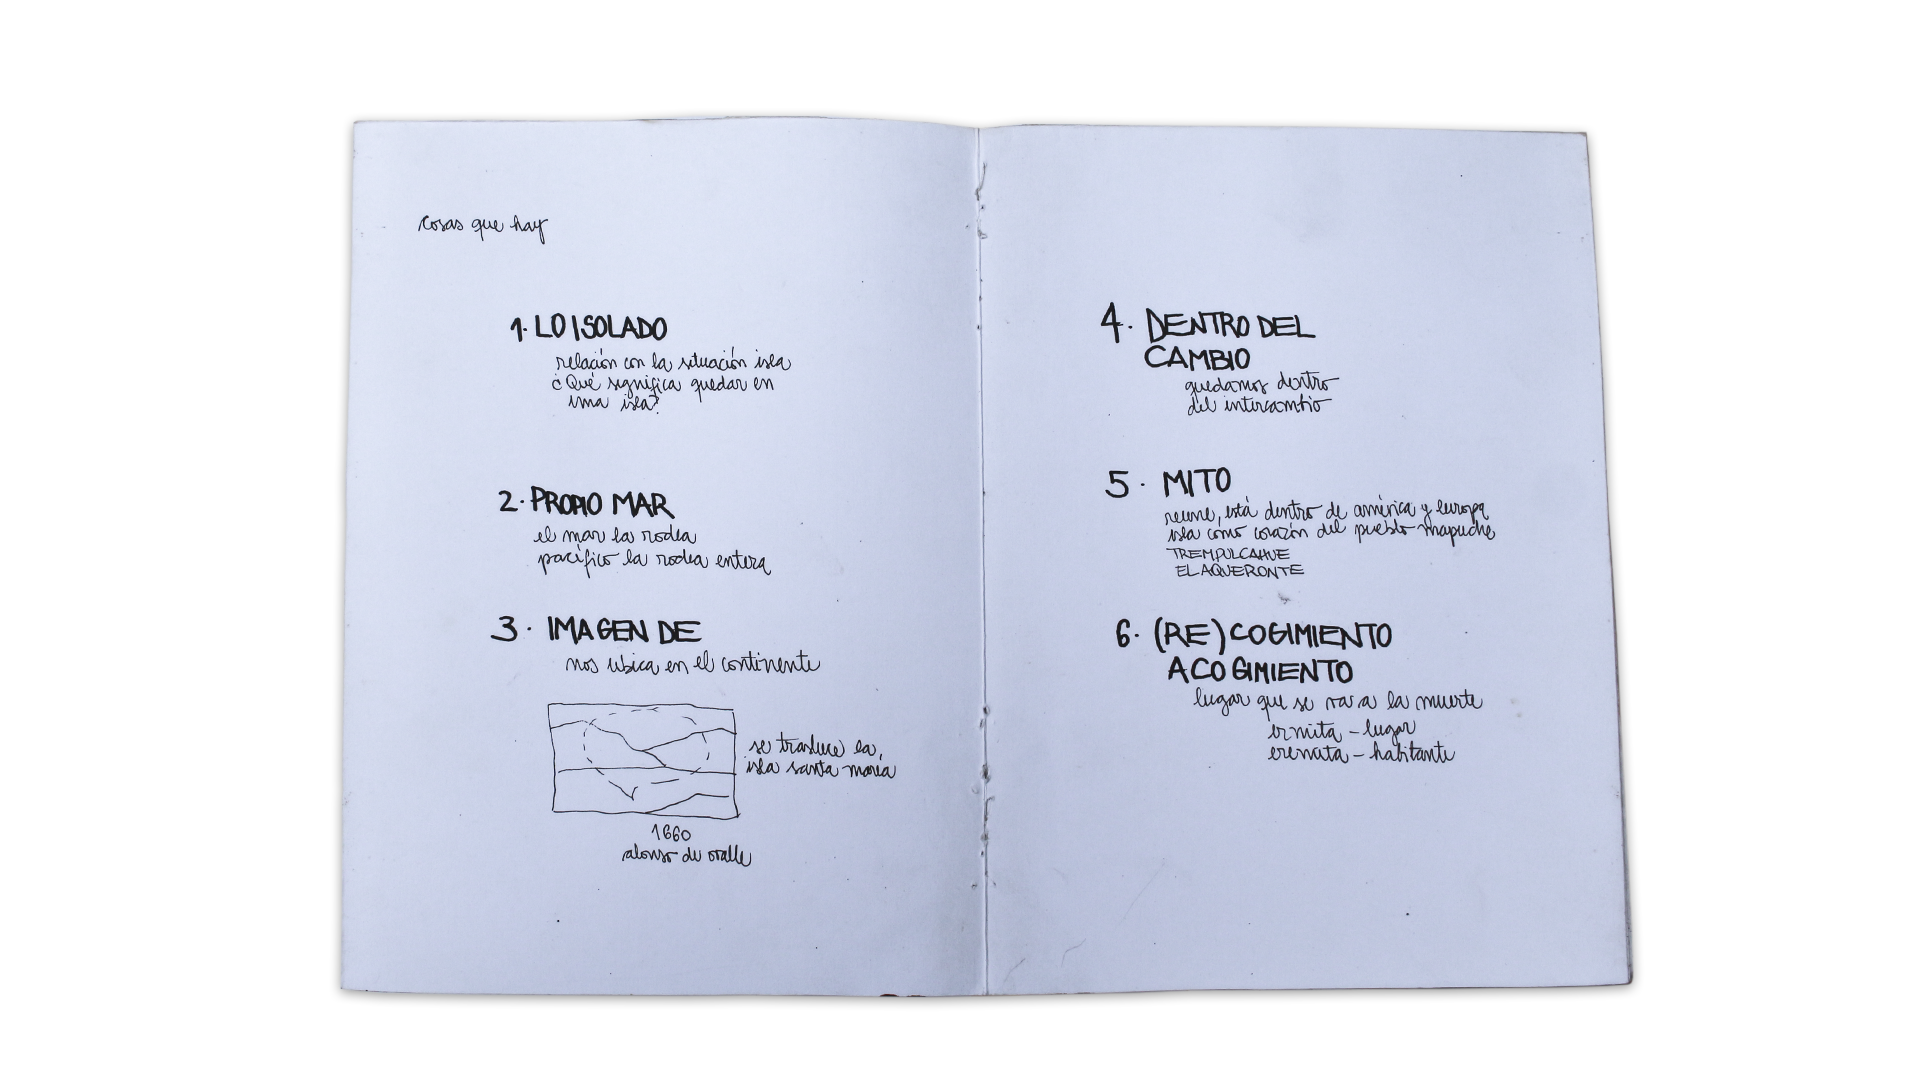 cosas que hay
1. LO ISOLADO
relación con la situación isla
¿Qué significa quedar en
una isla?
2. PROPIO MAR
el mar la rodea
pacífico la rodea entera
3. IMAGEN DE
nos ubica en el continente
se traduce la
isla santa maría
1660
alonso de ovalle
4. DENTRO DEL
CAMBIO
quedamos dentro
del intercambio
5. MITO
reune, está dentro de américa y europa
isla como corazón del pueblo mapuche
TREMPULCAHUE
EL AQUERONTE
6. (RE)COGIMIENTO
ACOGIMIENTO
lugar que se va a la muerte
ermita - lugar
eremita - habitante